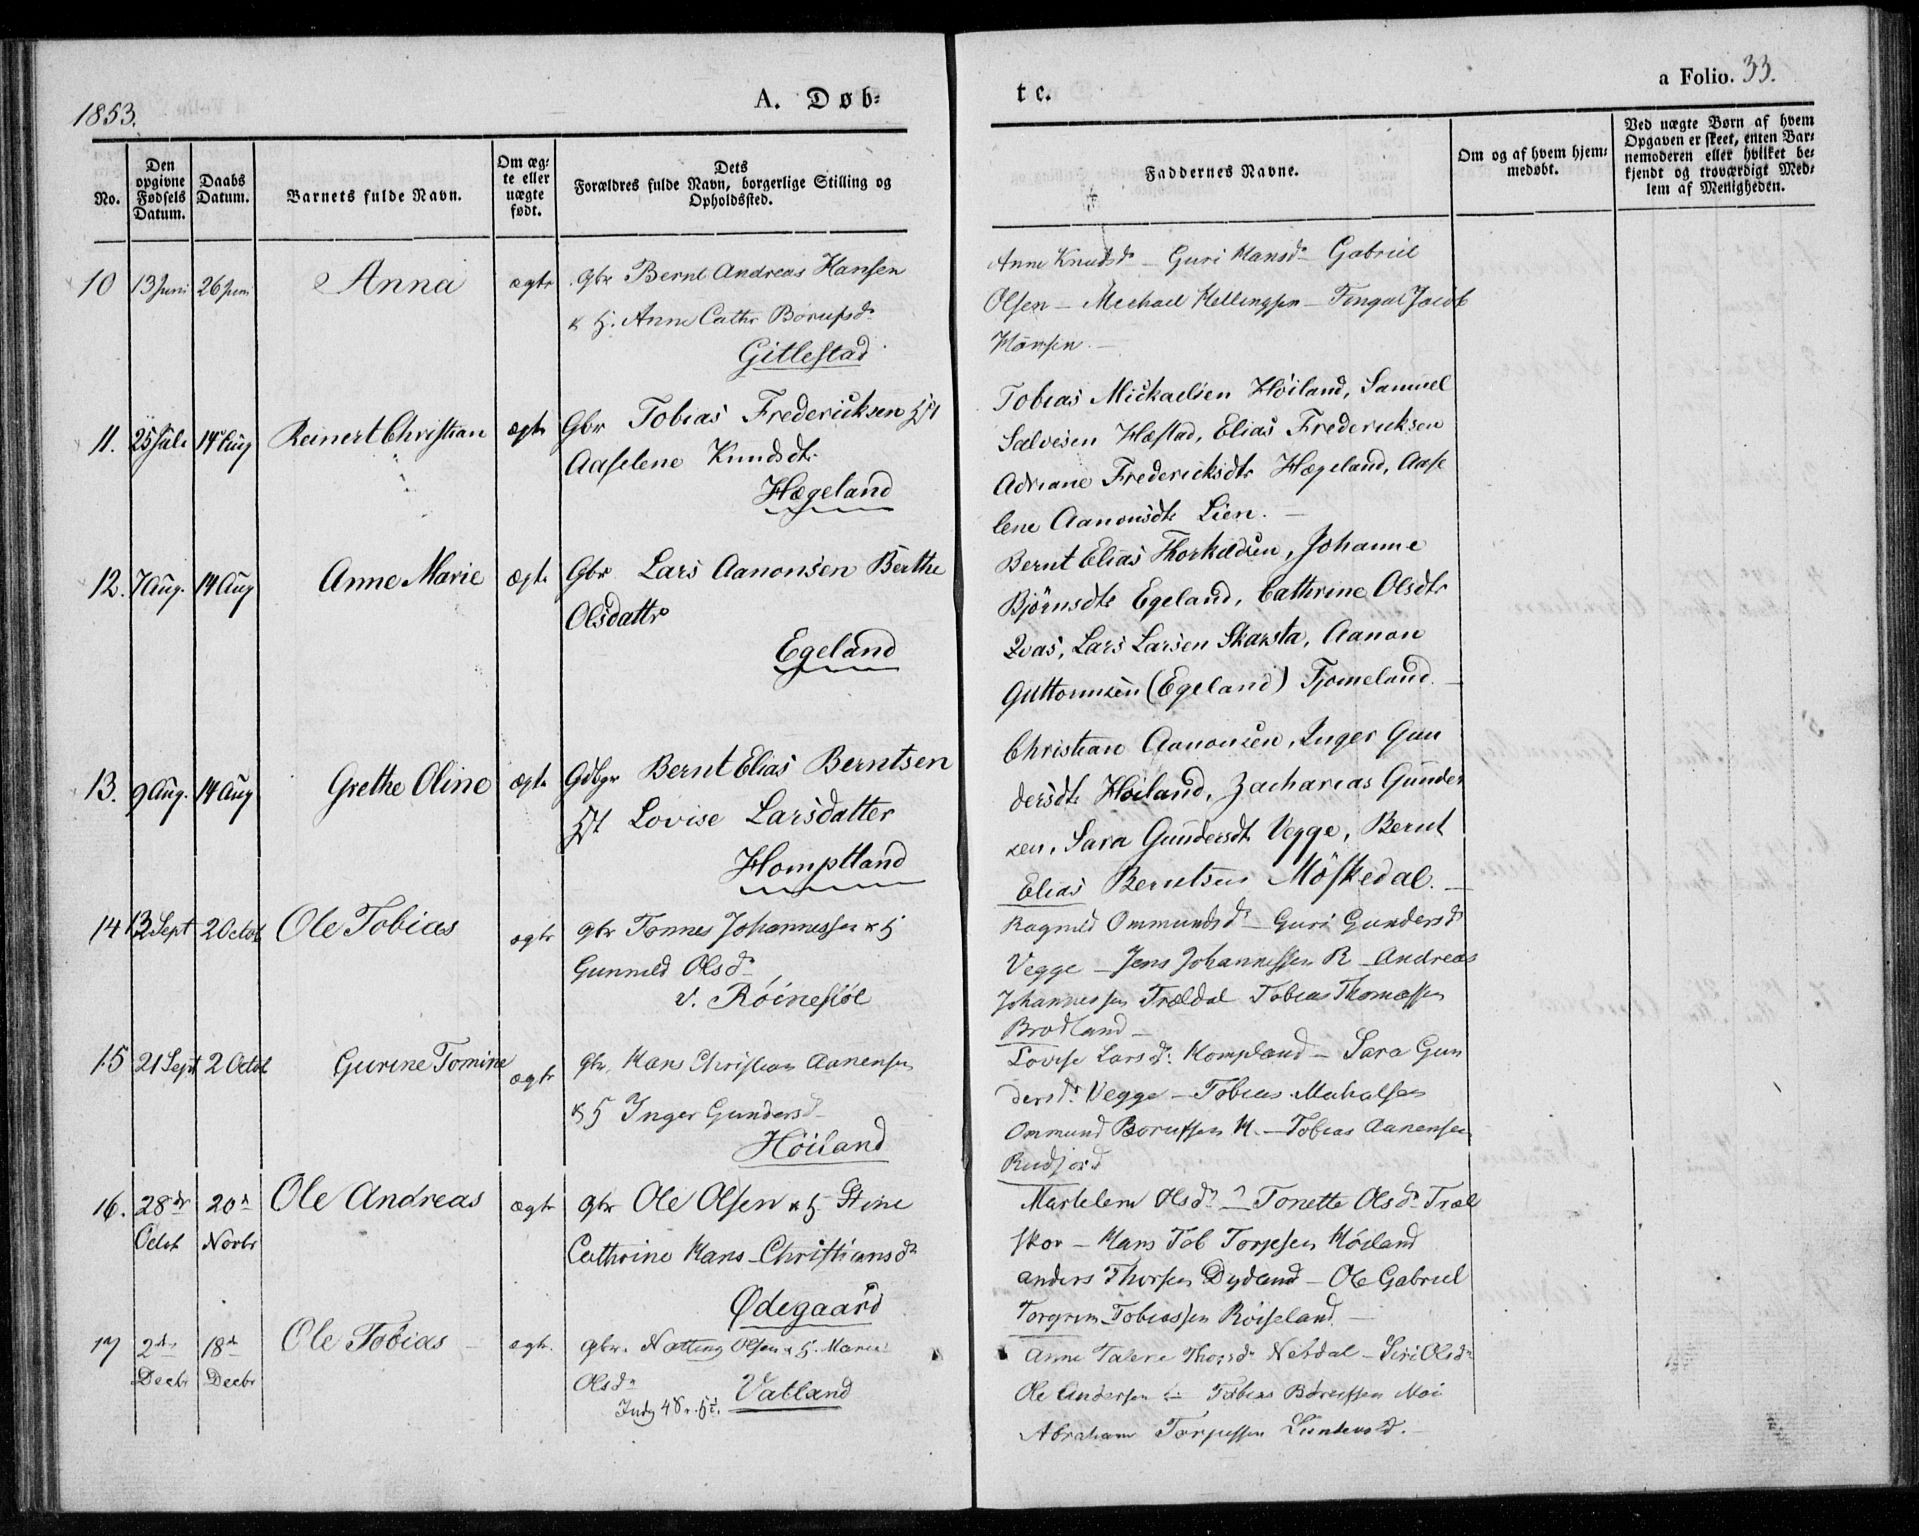 1853.
A. Døb-
No.
Den opgivne Fødsels Datum.
Daabs Datum.
Barnets fulde Navn.
Om ægte eller uægte født.
Dets Forældres fulde Navn, borgerlige Stilling og Opholdssted.
10 13 Juni 26 Juni Anna ægte gbr Bernt Andreas Hansen
& H. Anne Cathr Børufsd.
Gitlestad
11. 25 Juli 14 Aug Reinert Christian ægte Gbr Tobias Fredericksen Hst
Aaselene Knudsdtr
Hægeland
12. 7 Aug. 14 Aug Anne Marie ægt. Gbr Lars Aanonsen Berthe
Olsdattr
Egeland
13. 9 Aug. 14 Aug Grethe Oline ægt. Gdbgr Bernt Elias Berntsen
Hst Lovise Larsdatter
Homptland
14 13 Sept 2 Octob Ole Tobias ægte gbr Tønnes Johannessen & H
Gunnild Olsd.
Røinesløl
15 21 Sept 2 Octob Gurine Tomine ægte gbr. Hans Christian Aanensen
& H Inger Gundersd
Höiland
16. 28de 20de Ole Andreas ægte gbr Ole Olsen & H. Stine
Octob Novbr Cathrine Hans-Christiansd.
Ødegaard
17 2de 18de Ole Tobias ægte. gbr. Olsen & H. Maria
Decbr Decbr Olsd.
Vatland
t e.
a Folio. 33.
Faddernes Navne.
Om og af hvem hjemmedøbt.
Ved uægte Børn af hvem Opgaven er skeet, enten Barnemoderen eller hvilket bekjendt og troværdigt Medlem af Menigheden.
Anne Knudsd. - Guri Hansd. Gabriel
Olsen - Michael Kellingsen - Tengal Jacob
Hansen. -
Tobias Mickaelsen Höiland, Samuel
Salvesen Hæstad, Elias Fredericksen
Adriane Fredericksdtr Hægeland, Aase
lene Aanonsdtr Lien. -
Bernt Elias Thorkildsen, Johanne
Bjørnsdtr Egeland, Cathrine Olsdtr
Qvas, Lars Larsen Skarsta, Aanon
Guttormsen (Egeland) Tjomeland. -
Christian Aanonsen, Inger Gun
dersdtr Höiland, Zacharias Gunder
sen, Sara Gundersdtr Vegge, Bernt
Elias Berntsen Möskedal. -
Ragnild Ommundsd. - Guri Gundersd.
Vegge - Jens Johannessen R - Andreas
Johannessen Trældal Tobias Thomassen
Brodland -
Lovise Larsd. Hompland - Sara Gun
dersd. Vegge - Tobias Mikalsen
Ommund Børufsen H. - Tobias Aanensen
Rudjord
Marlelene Olsd. - Tonette Olsd. Træl
skor - Hans Tob Torjesen Höiland
Anders Thorsen Dydland - Ole Gabriel
Torgrim Tobiassen Röiseland -
Anne Talene Thorsd. Netdal - Siri Olsd.
Ole Andersen - Tobias Børufsen Moi
Abraham Torjussen Lindevold. -